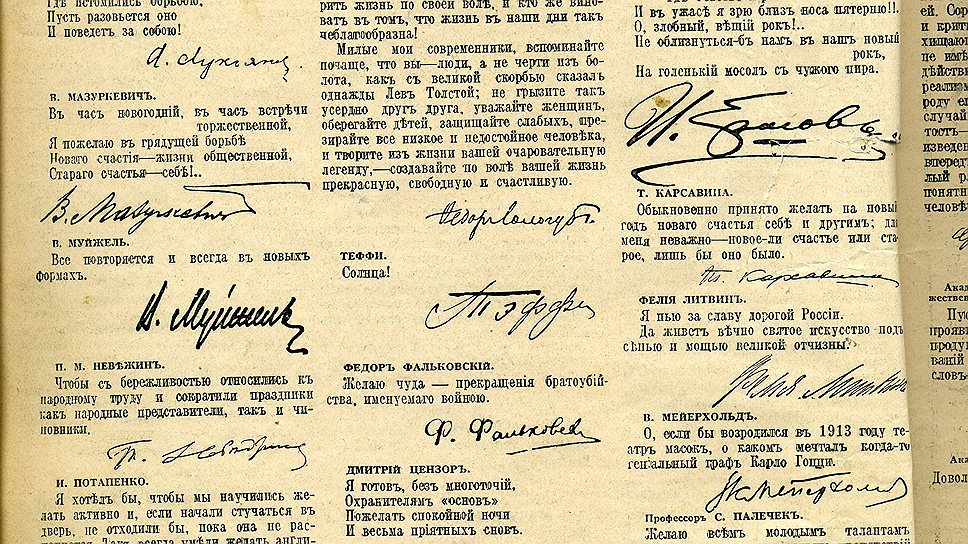 гдѣ истомились борьбою,
Пусть разовьется оно
И поведетъ за собою!
А. Лукьяно
В. МАЗУРКЕВИЧЪ.
Въ часъ новогодній, въ часъ встрѣчи
торжественной,
Я пожелаю въ грядущей борьбѣ
Новаго счастія—жизни общественной,
Стараго счастья—себѣ!..
В. Мазуркевич
В. МУЙЖЕЛЬ.
Все повторяется и всегда въ новыхъ
формахъ.
В. Муйжель
П. М. НЕВѢЖИНЪ.
Чтобы съ бережливостью относились къ
народному труду и сократили праздники
какъ народные представители, такъ и чи-
новники.
П. Невѣжинъ
И. ПОТАПЕНКО.
Я хотѣлъ бы, чтобы мы научились же-
лать активно и, если начали стучаться въ
дверь, не отходили бы, пока она не рас-
пахнется. Такъ всегда умѣли желать англи-
рить жизнь по своей волѣ, и кто же вино-
ватъ въ томъ, что жизнь въ наши дни такъ
чеблагообразна!
Милые мои современники, вспоминайте
почаще, что вы—люди, а не черти изъ бо-
лота, какъ съ великой скорбью сказалъ
однажды Левъ Толстой; не грызите такъ
усердно другъ друга, уважайте женщинъ,
оберегайте дѣтей, защищайте слабыхъ, пре-
зирайте все низкое и недостойное человѣка,
и творите изъ жизни вашей очаровательную
легенду,—создавайте по волѣ вашей жизнь
прекрасную, свободную и счастливую.
Ѳедоръ Сологубъ.
ТЕФФИ.
Солнца!
Тэффи
ФЕДОРЪ ФАЛЬКОВСКІЙ.
Желаю чуда — прекращенія братоубій-
ства, именуемаго войною.
Ф. Фальковск
ДМИТРІЙ ЦЕНЗОРЪ.
Я готовъ, безъ многоточій,
Охранителямъ «основъ»
Пожелать спокойной ночи
И весьма пріятныхъ сновъ.
И въ ужасѣ я зрю близъ носа пятерню!!.
О, злобный, вѣщій рокъ!..
Не облизнуться-бъ намъ въ нашъ новый
рокъ,
На голенькій мосолъ съ чужого пира.
И. Ершовъ
Т. КАРСАВИНА.
Обыкновенно принято желать на новый
годъ новаго счастья себѣ и другимъ; для
меня неважно—новое-ли счастье или ста-
рое, лишь бы оно было.
Т. Карсавина
ФЕЛІЯ ЛИТВИНЪ.
Я пью за славу дорогой Россіи.
Да живетъ вѣчно святое искусство подъ
сѣнью и мощью великой отчизны.
Фелія Литвин
В. МЕЙЕРХОЛЬДЪ.
О, если бы возродился въ 1913 году те-
атръ масокъ, о какомъ мечталъ когда-то
геніальный графъ Карло Гоцци.
Мейерхольд
Профессоръ С. ПАЛЕЧЕКЪ.
Желаю всѣмъ молодымъ талантамъ
ей. Сор
и крити
хищаю
не имѣ
дѣйств
реализм
роду ег
случай
тость—
изведен
впереду
лый р
понятн
человѣ
Акад
жествен
Пус
прояви
продун
вашій
словъ
Ака
Довол